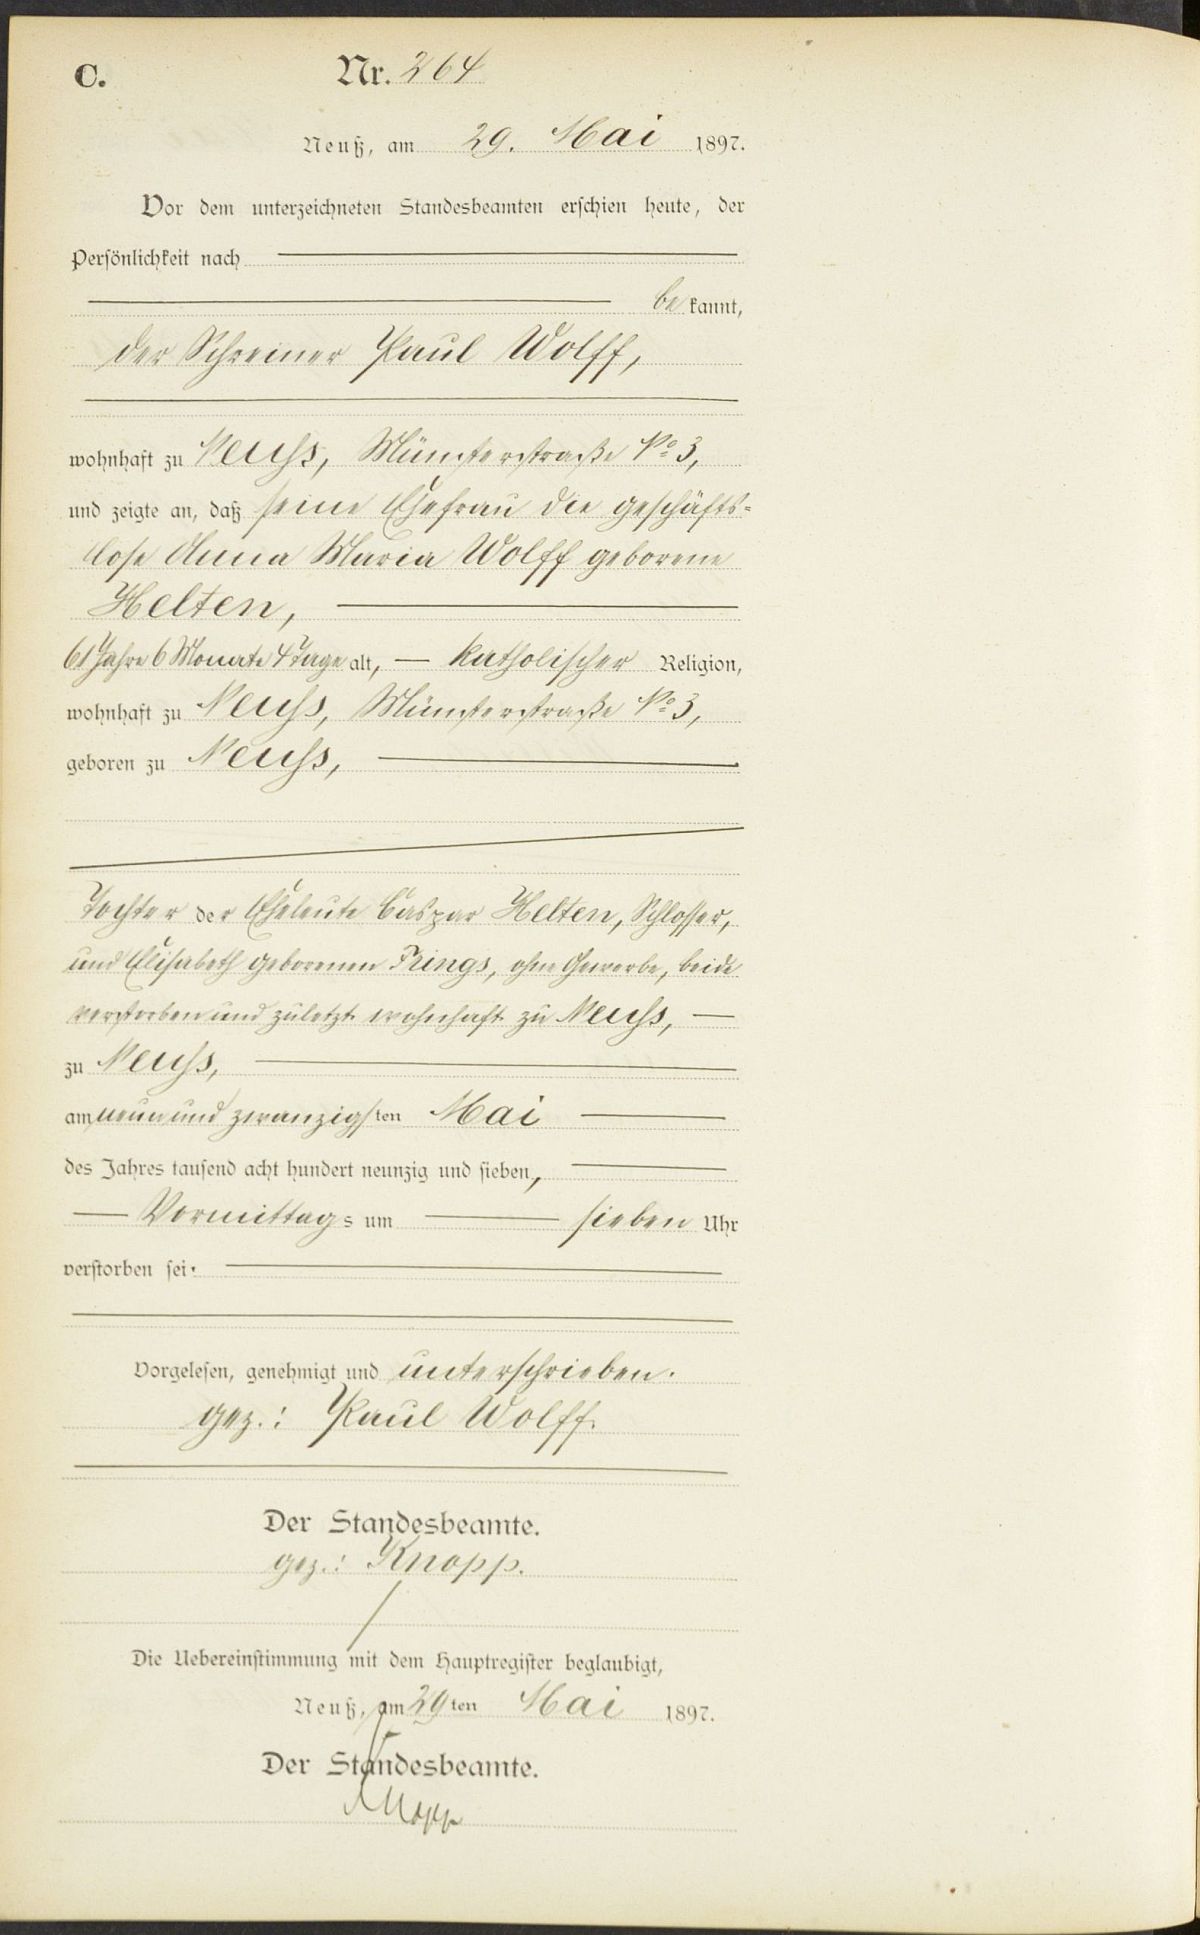 C. Nr. 264
Neuß, am 29. Mai 1897.
Vor dem unterzeichneten Standesbeamten erschien heute, der
Persönlichkeit nach
bekannt,
der Schreiner Paul Wolff,
wohnhaft zu Neuss, Münsterstraße No 3,
und zeigte an, daß seine Ehefrau die geschäfts-
lose Anna Maria Wolff geborene
Helten,
61 Jahre 6 Monate 4 Tage alt, katholischer Religion,
wohnhaft zu Neuss, Münsterstraße No 3,
geboren zu Neuss,
Tochter der Eheleute Caspar Helten, Schlosser,
und Elisabeth geborenen Frings, ohne Gewerbe, beide
verstorben und zuletzt wohnhaft zu Neuss,
zu Neuss,
am neun und zwanzigsten Mai
des Jahres tausend acht hundert neunzig und sieben,
Vormittags um sieben Uhr
verstorben sei.
Vorgelesen, genehmigt und unterschrieben.
gez.: Paul Wolff.
Der Standesbeamte.
gez.: Knopp.
Die Uebereinstimmung mit dem Hauptregister beglaubigt,
Neuß, am 29ten Mai 1897.
Der Standesbeamte.
Knopp